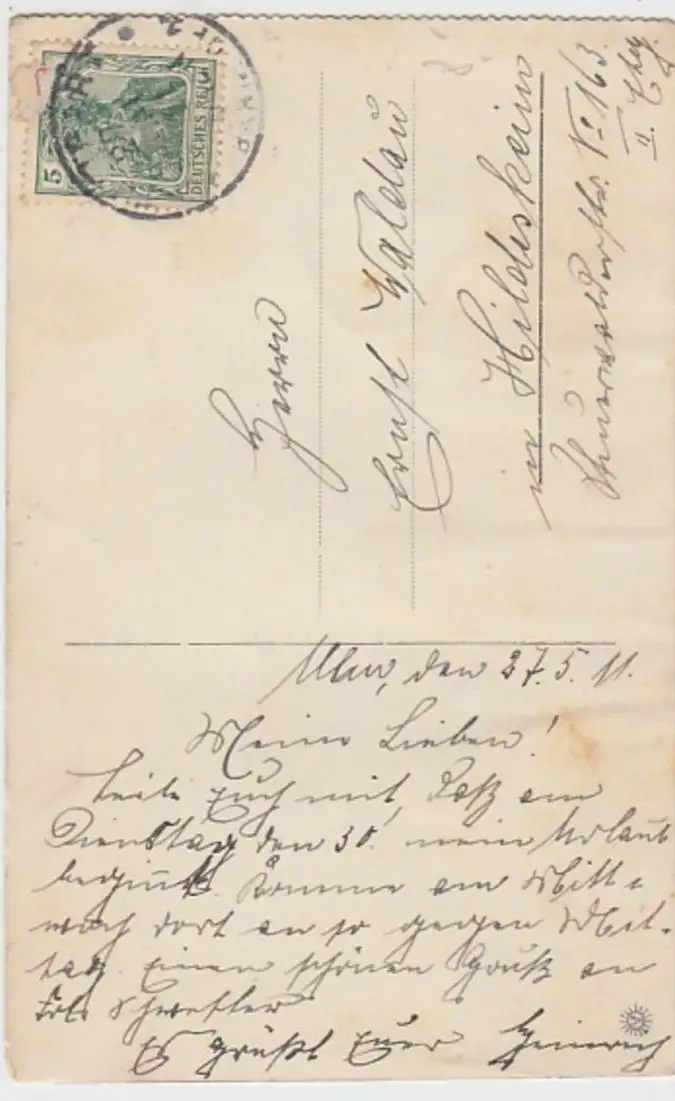 5
DEUTSCHES REICH
Herrn
Ernst Waldau
in Hildesheim
Steuerwalderstr. No 163
II. Etg.
Ulm, den 27.5.11.
Meine Lieben!
Teile Euch mit, daß am
Dienstag den 30. mein Urlaub
beginnt. Komme am Mitt=
woch dort an so gegen Mit-
tag. Einen schönen Gruß an
Frl. Schwester
Es grüßt Euer Heinrich